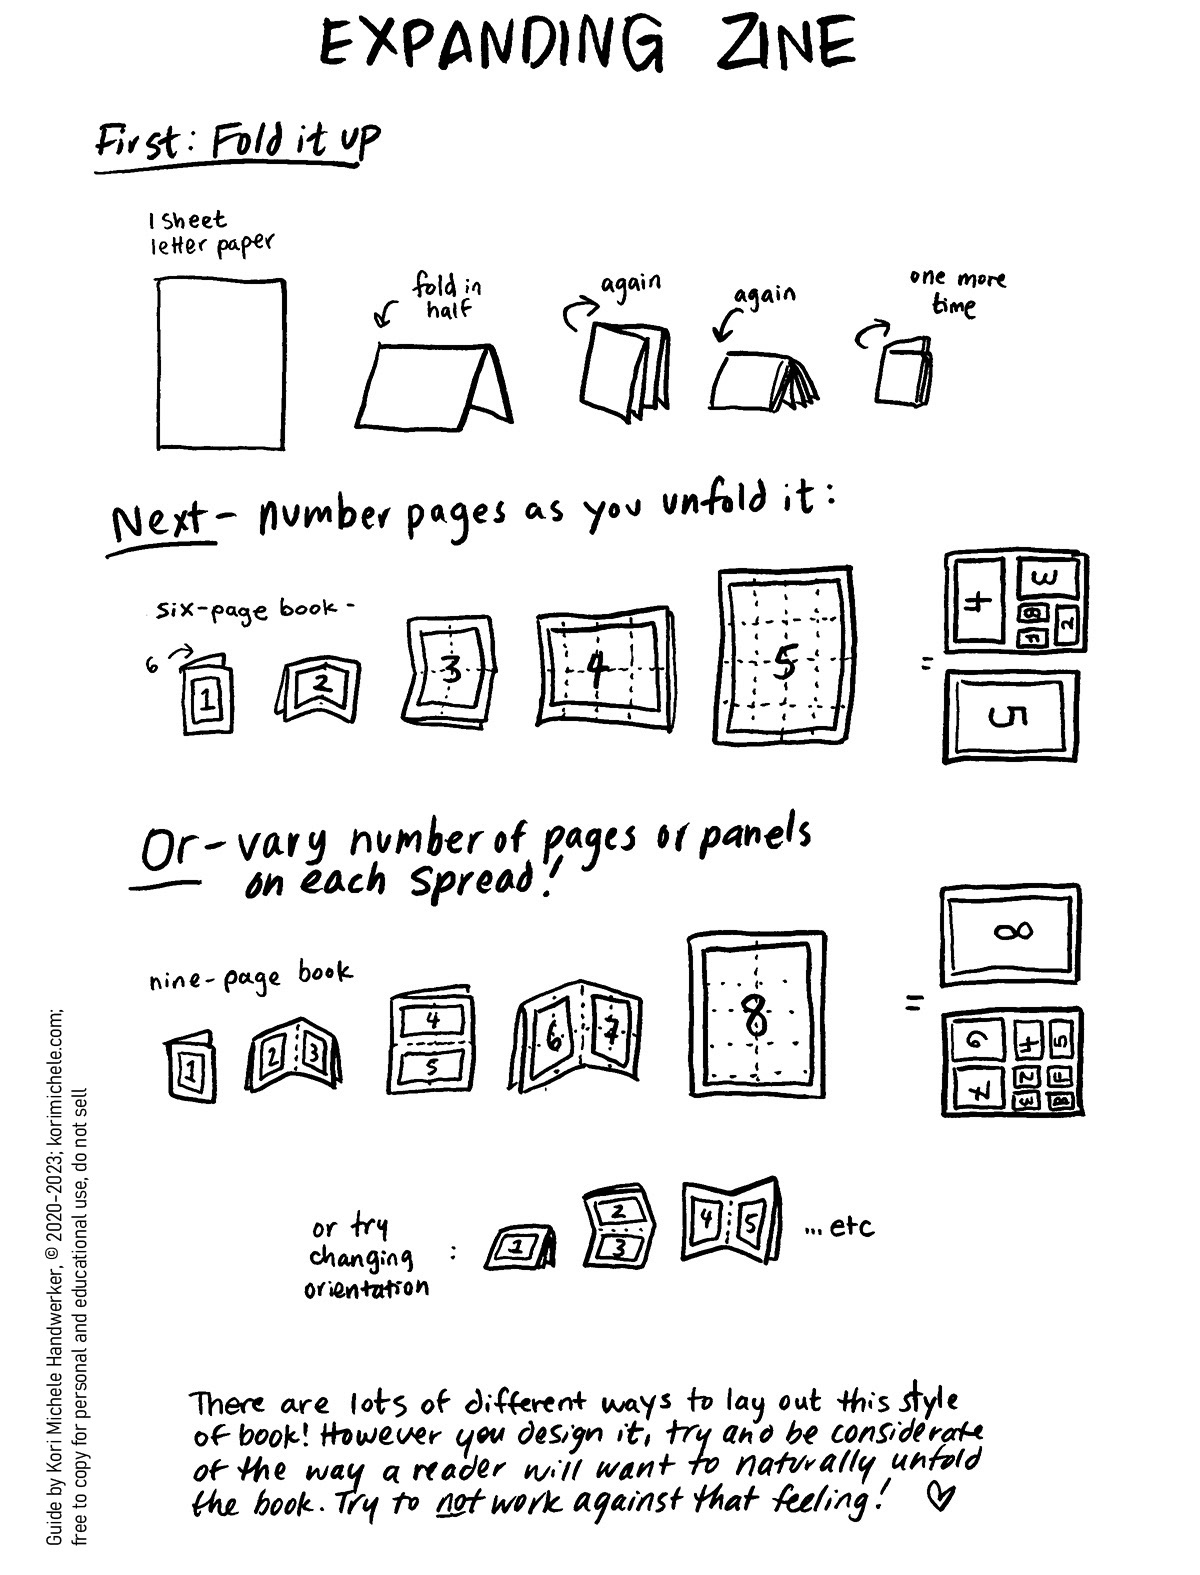 EXPANDING ZINE
First: Fold it up
1 Sheet
letter paper
fold in
half
again
again
one more
time
Next - number pages as you unfold it:
six-page book -
6
1
2
3
4
5
=
4
3
B
2
F
5
Or - vary number of pages or panels
on each spread!
nine-page book
1
2
3
4
5
6
7
8
=
8
6
4
5
7
2
F
3
B
or try
changing
orientation
:
1
2
3
4
5
... etc
There are lots of different ways to lay out this style
of book! However you design it, try and be considerate
of the way a reader will want to naturally unfold
the book. Try to not work against that feeling! ♡
Guide by Kori Michele Handwerker, © 2020-2023; korimichele.com;
free to copy for personal and educational use, do not sell